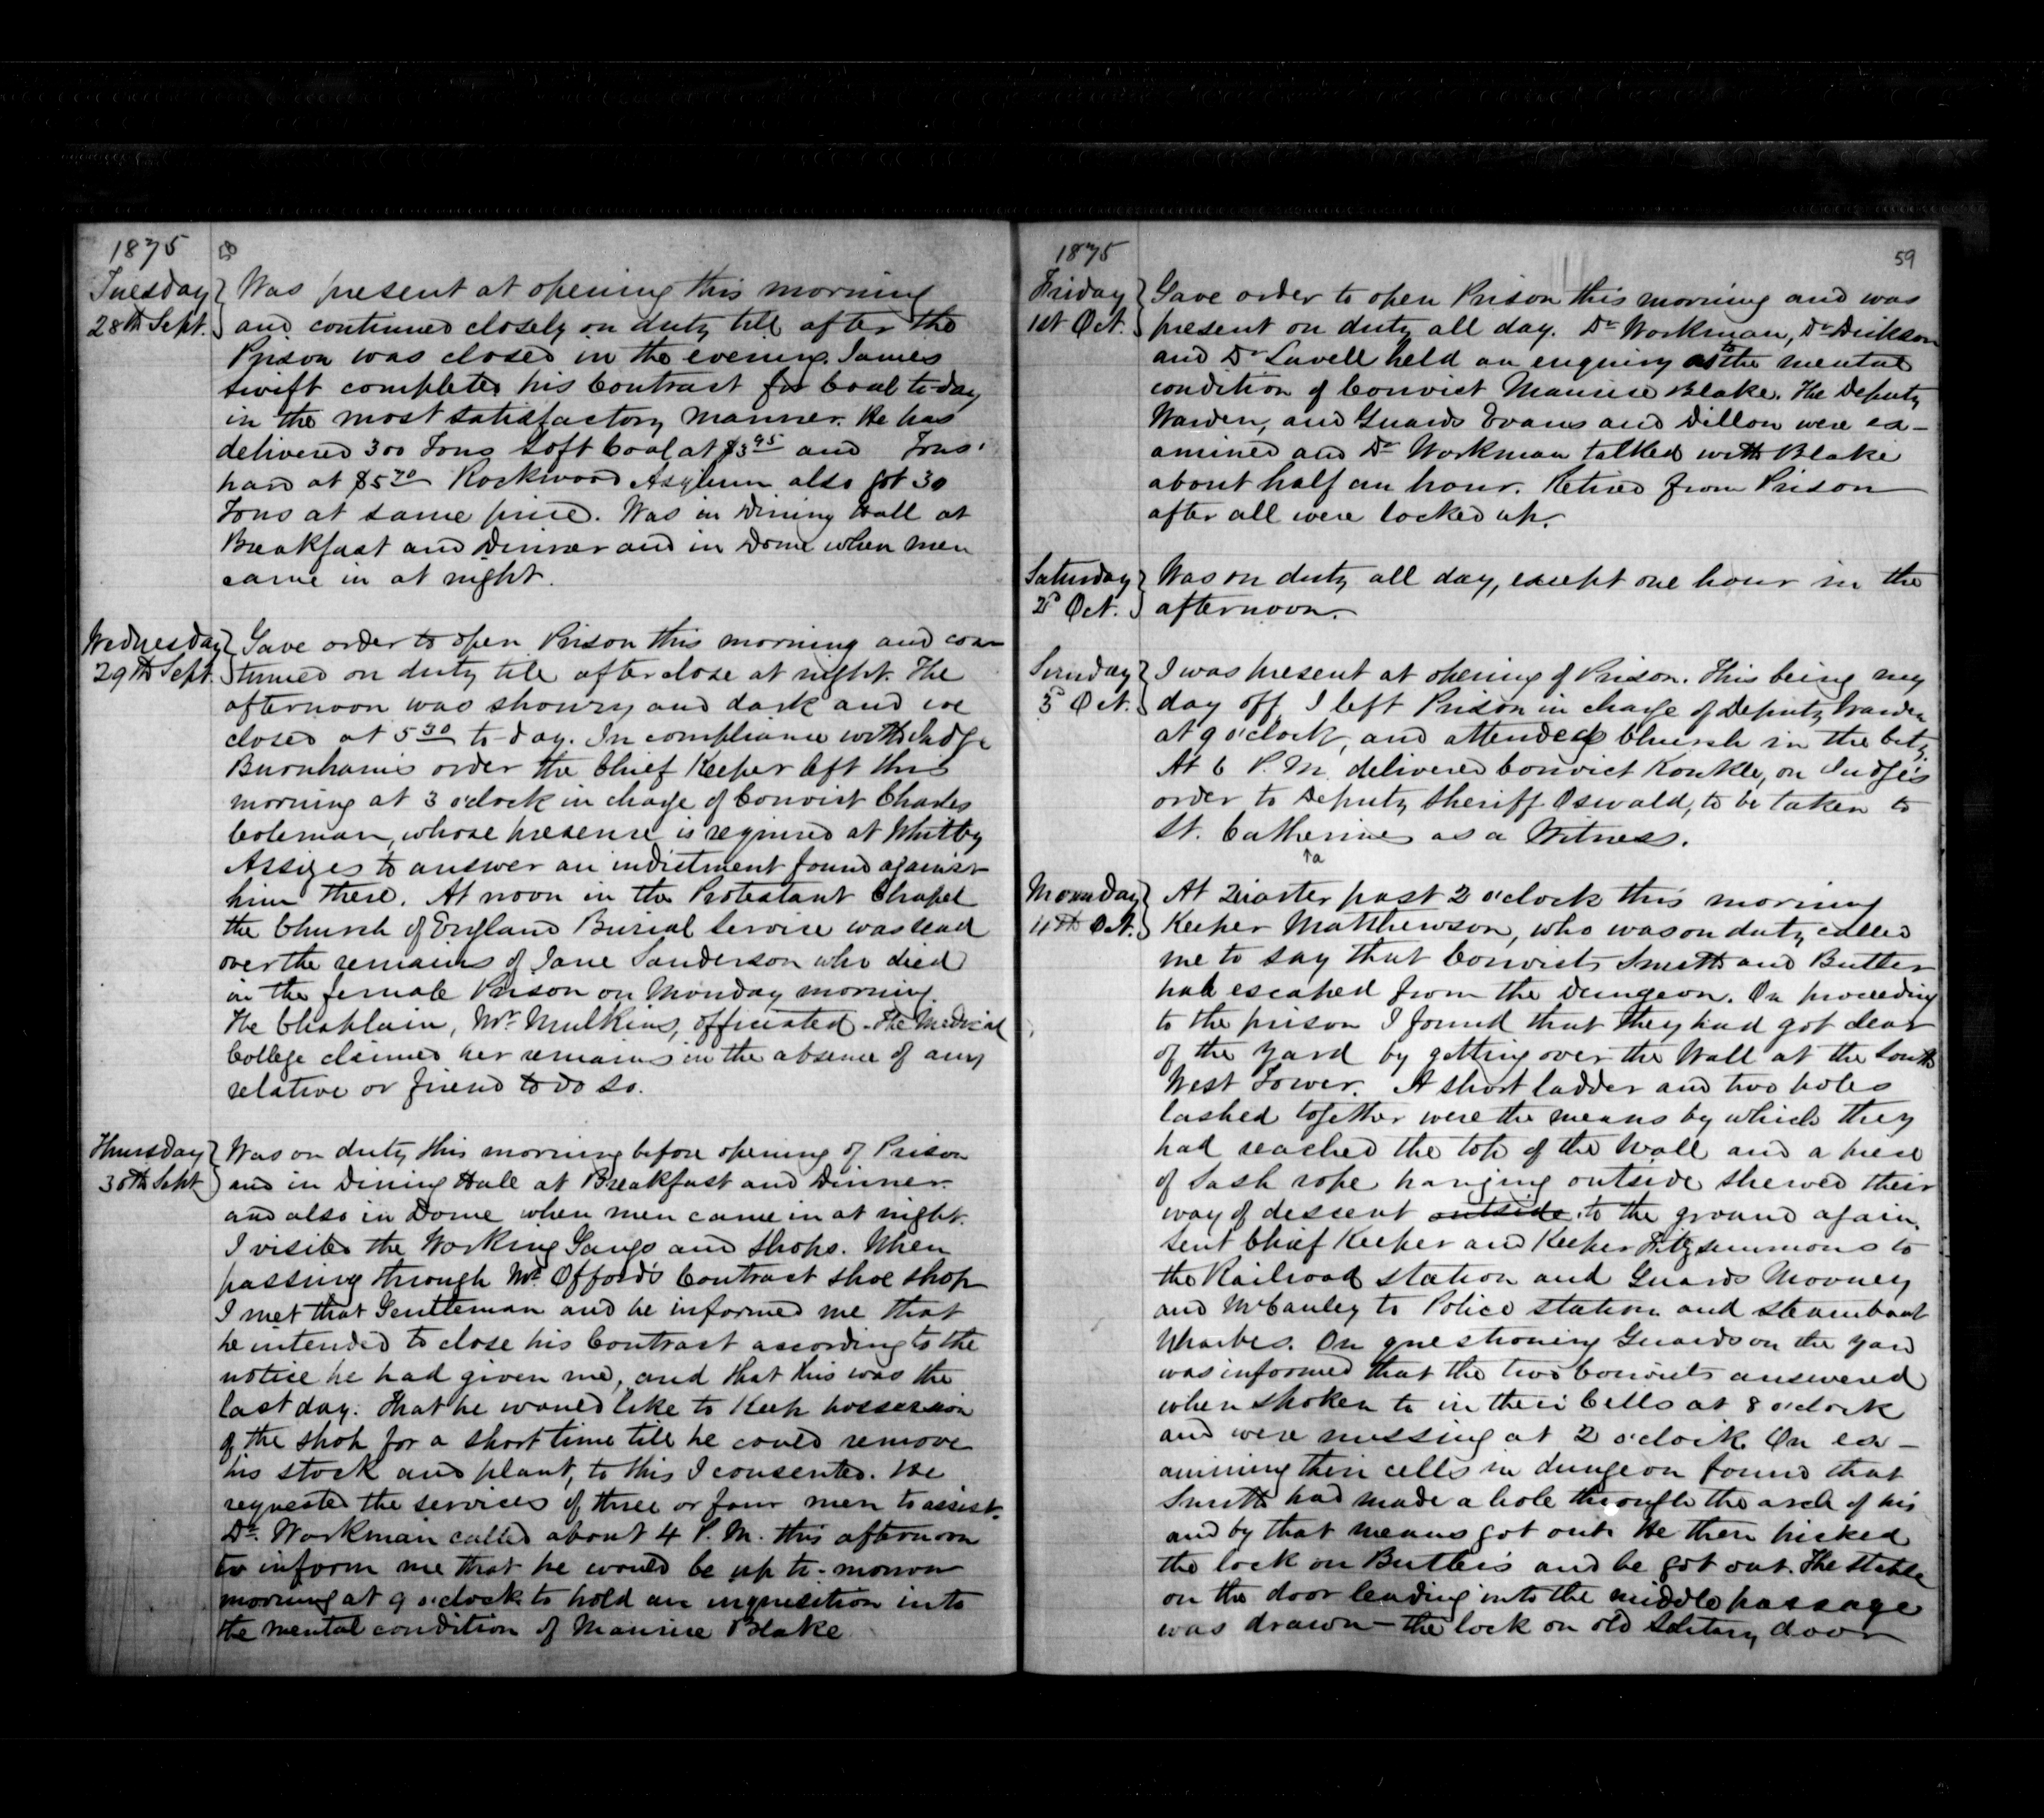 1875
58
Tuesday
28th Sept.
Was present at opening this morning
and continued closely on duty till after the
Prison was closed in the evening. James
Swift completes his Contract for Coal to-day
in the most satisfactory manner. He has
delivered 300 Tons Soft Coal at $3.95 and Tons
hard at $5.70 Rockwood Asylum also got 30
Tons at same price. Was in Dining Hall at
Breakfast and Dinner and in Dome when men
came in at night.
Wednesday
29th Sept.
Gave order to open Prison this morning and con
tinued on duty till after close at night. The
afternoon was showry and dark and we
closed at 5.30 to-day. In compliance with Judge
Burnham's order the Chief Keeper left this
morning at 3 o'clock in charge of Convict Charles
Coleman, whose presence is required at Whitby
Assizes to answer an indictment found against
him there. At noon in the Protestant Chapel
the Church of England Burial Service was read
over the remains of Jane Sanderson who died
in the female Prison on Monday morning.
The Chaplain, Mr. Mulkins, officiated. The Medical
College claimed her remains in the absence of any
relative or friend to do so.
Thursday
30th Sept
Was on duty this morning before opening of Prison
and in Dining Hall at Breakfast and Dinner
and also in Dome when men came in at night.
I visited the Working Gangs and Shops. When
passing through Mr. Offord's Contract shoe shop
I met that Gentleman and he informed me that
he intended to close his Contract according to the
notice he had given me, and that this was the
last day. That he would like to Keep possession
of the shop for a short time till he could remove
his stock and plant, to this I consented. He
requested the services of three or four men to assist.
Dr. Workman called about 4 P.M. this afternoon
to inform me that he would be up to-morrow
morning at 9 o'clock to hold an inquisition into
the mental condition of Maurice Blake
1875
59
Friday
1st Oct.
Gave order to open Prison this morning and was
present on duty all day. Dr Workman, Dr Dickson
and Dr Lavell held an enquiry as to the mental
condition of Convict Maurice Blake. The Deputy
Warden, and Guards Evans and Dillon were ex-
amined and Dr Workman talked with Blake
about half an hour. Retired from Prison
after all were locked up.
Saturday
2d Oct.
Was on duty all day, except one hour in the
afternoon.
Sunday
3d Oct.
I was present at opening of Prison. This being my
day off I left Prison in charge of Deputy Warden
at 9 o'clock, and attended Church in the City.
At 6 P.M. delivered Convict Konkle, on Judge's
order to Deputy Sheriff Oswald, to be taken to
St. Catherines as a Witness.
a
Monday
4th Oct.
At Quarter past 2 o'clock this morning
Keeper Matthewson, who was on duty called
me to say that Convicts Smith and Butler
had escaped from the Dungeon. On proceeding
to the prison I found that they had got clear
of the yard by getting over the Wall at the South
West Tower. A short ladder and two poles
lashed together were the means by which they
had reached the top of the Wall and a piece
of Sash rope hanging outside shewed their
way of descent outside to the ground again.
Sent Chief Keeper and Keeper Fitzsimmons to
the Railroad station and Guards Mooney
and McCauley to Police station and steamboat
Wharves. On questioning Guards on the yard
was informed that the two Convicts answered
when spoken to in their Cells at 8 o'clock
and were missing at 2 o'clock. On ex-
amining their cells in dungeon found that
Smith had made a hole through the arch of his
and by that means got out. He then picked
the lock on Butler's and he got out. The staple
on the door leading into the middle passage
was drawn - the lock on old Solitary door